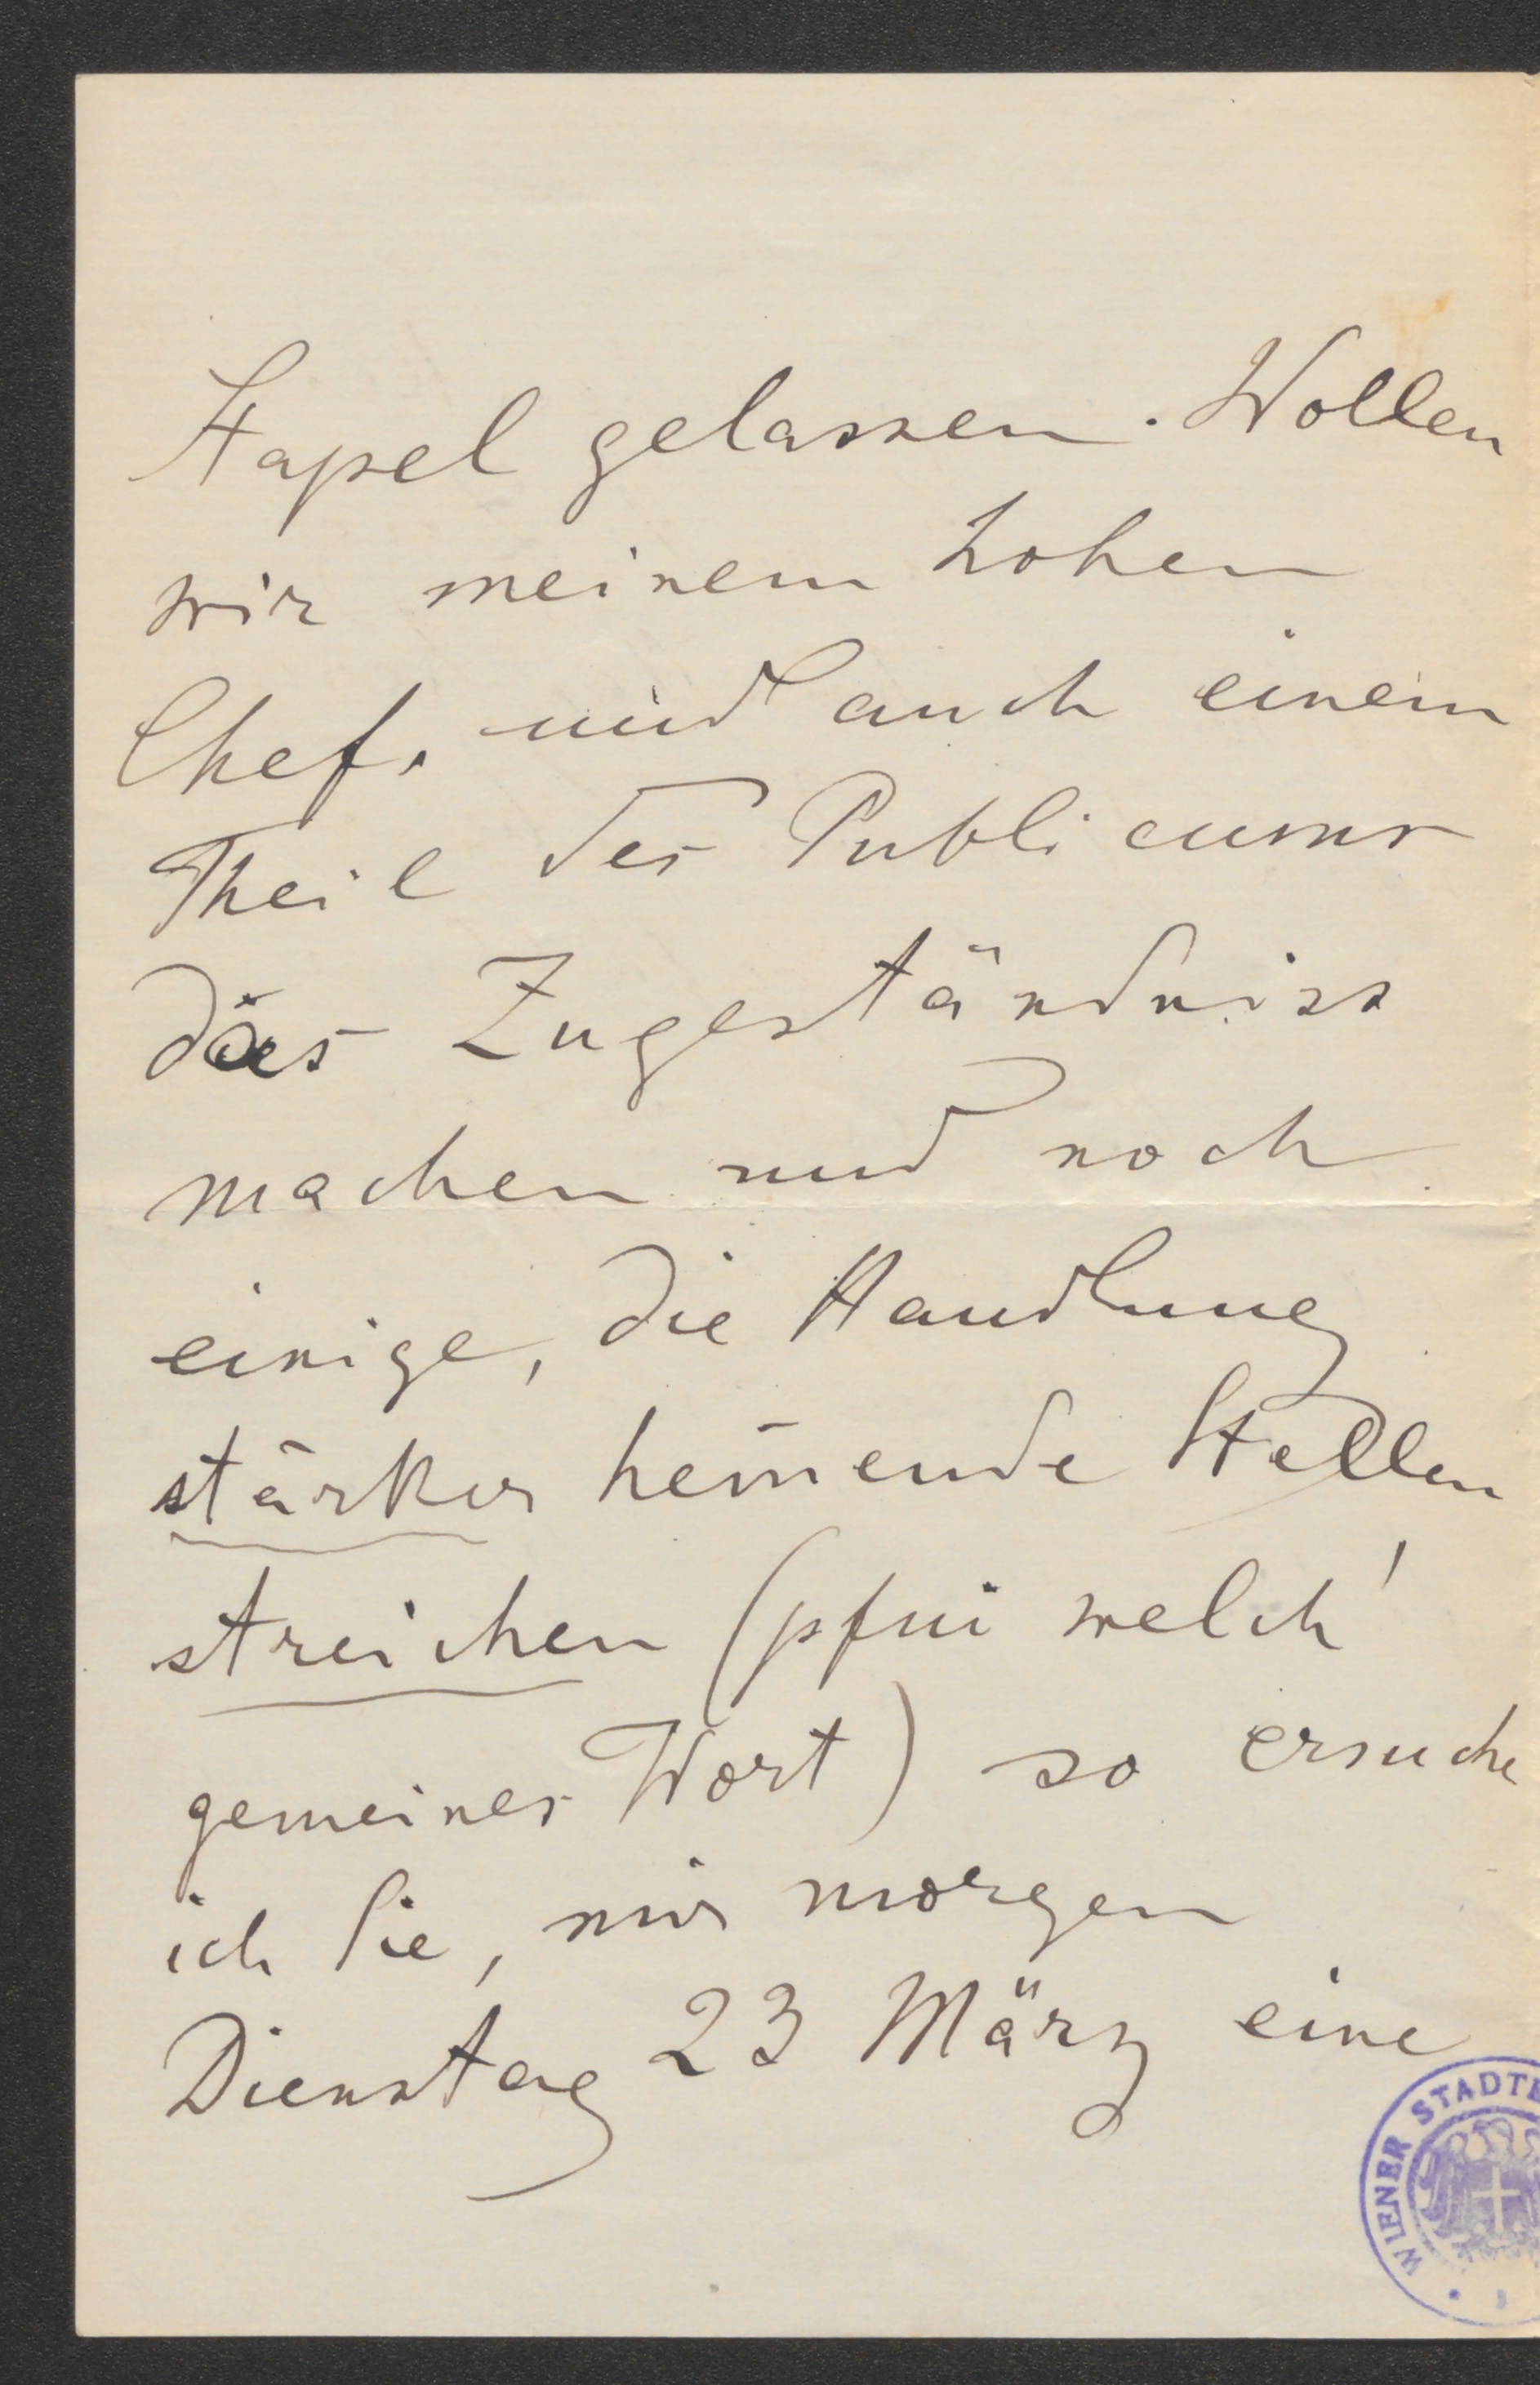 Stapel gelassen. Wollen
wir meinem hohen
Chef. und auch einem
Theil des Publicums
das Zugeständniss
machen und noch
einige, die Handlung
stärker hem̄ende Stellen
streichen (pfui welch'
gemeines Wort) so ersuche
ich Sie, mir morgen
Dienstag 23 März eine
WIENER STADT